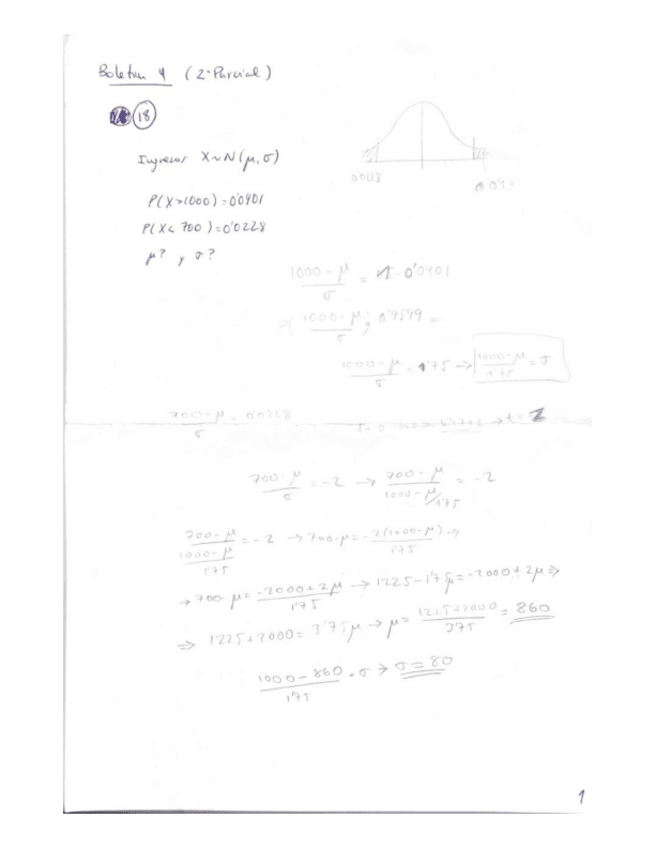 Boletin 4 (2º Parcial)
18
Ingresos X~N(μ,σ)
P(X>1000)=0'0401
P(X<700)=0'0228
μ? y σ?
0'0228
(1000-μ)/σ = 0'0401
P( (1000-μ)/σ ; 0'9599 =
(1000-μ)/σ = 1'75 → (1000-μ)/1'75 = σ
(700-μ)/σ = 0'0228
(700-μ)/σ = -2 → (700-μ)/((1000-μ)/1'75) = -2
(700-μ)/((1000-μ)/1'75) = -2 → 700-μ = -2(1000-μ)/1'75 →
→ 700-μ = (-2000+2μ)/1'75 → 1225-1'75μ = -2000+2μ ⇒
⇒ 1225+2000 = 3'75μ → μ = (1225+2000)/3'75 = 860
(1000-860)/1'75 = σ → σ = 80
1